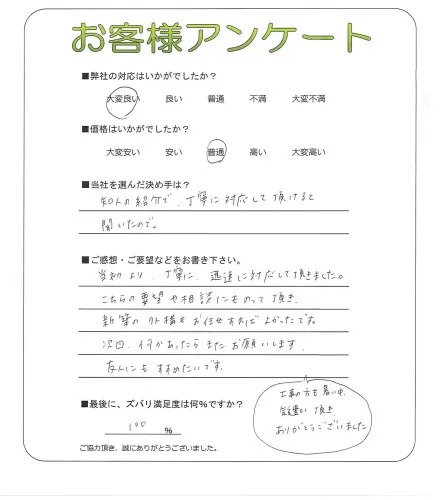 お客様アンケート
■弊社の対応はいかがでしたか？
大変良い 良い 普通 不満 大変不満
■価格はいかがでしたか？
大変安い 安い 普通 高い 大変高い
■当社を選んだ決め手は？
知人の紹介で、丁寧に対応して頂けると
聞いたので。
■ご感想・ご要望などをお書き下さい。
当初より、丁寧に、迅速に対応して頂きました。
こちらの要望や相談にものって頂き、
新築の外構もお任せすればよかったです。
次回、何かあったらまたお願いします。
友人にもすすめたいです。
■最後に、ズバリ満足度は何%ですか？
100 %
工事の方も暑い中、
気遣い頂き
ありがとうございました
ご協力頂き、誠にありがとうございました。